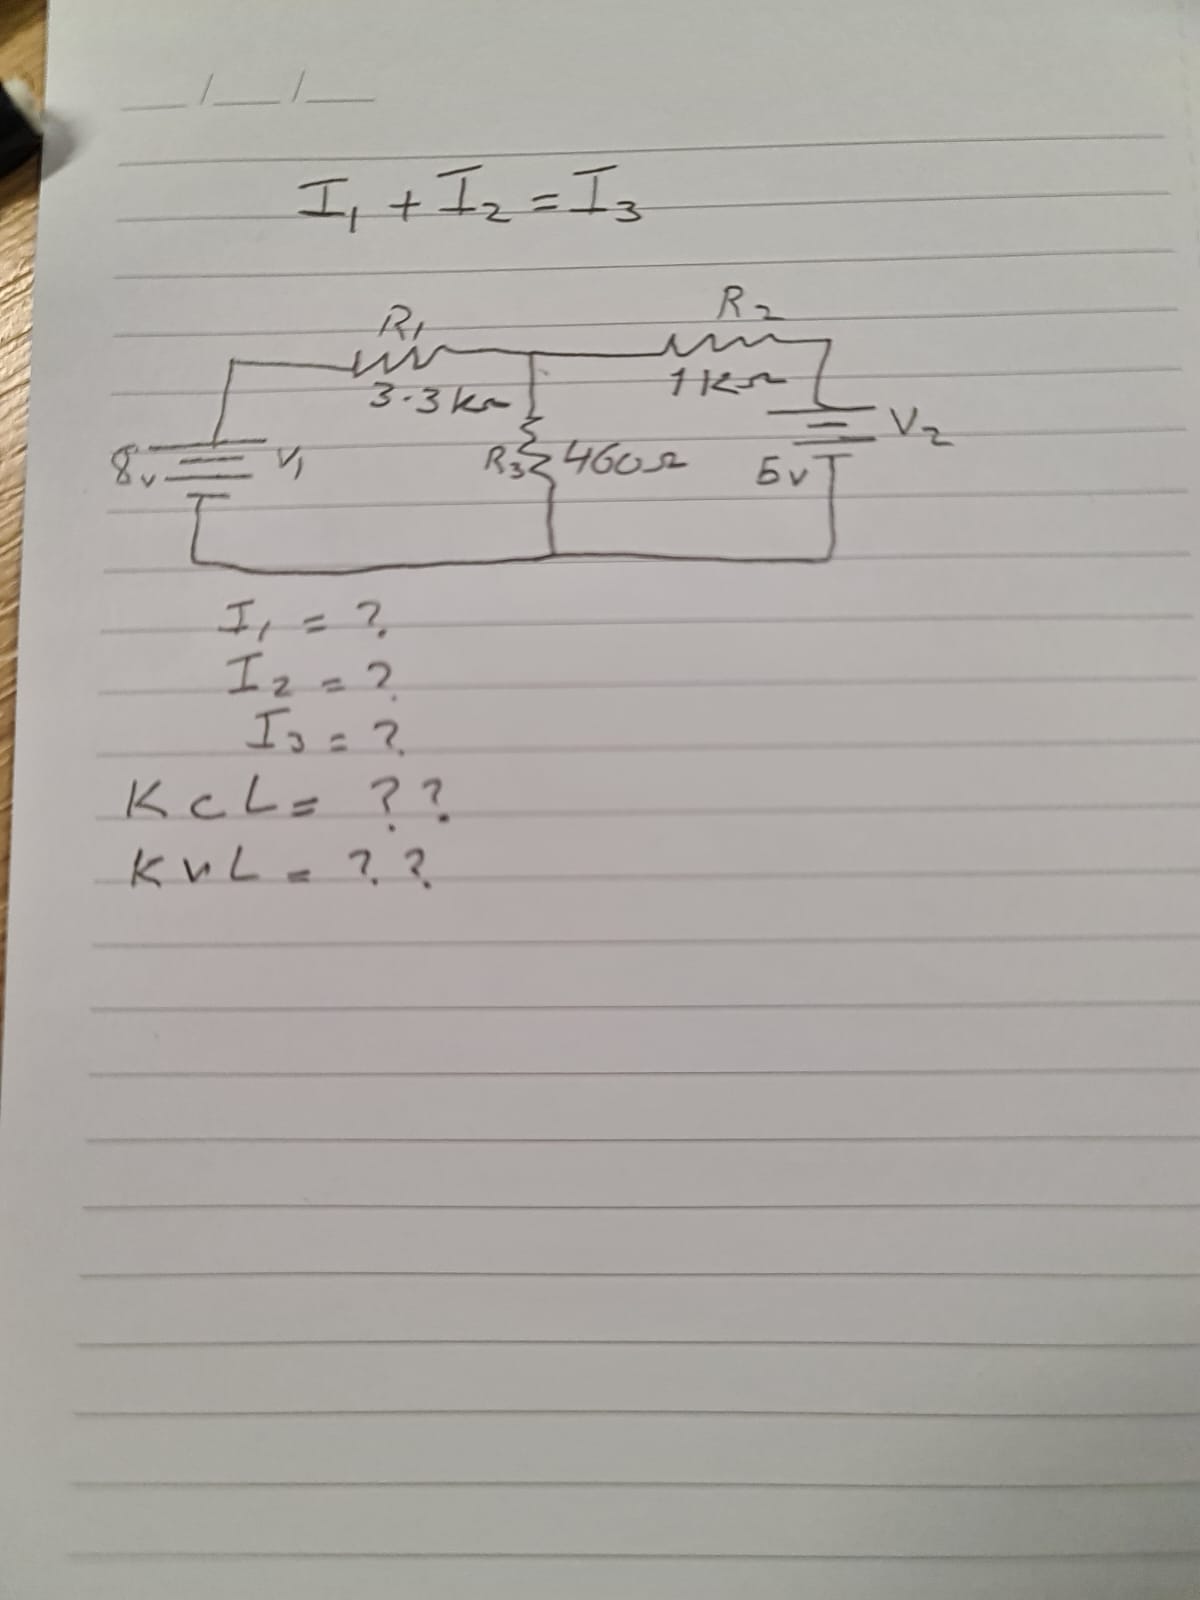 __/__/__
I₁ + I₂ = I₃
R₁ R₂
3.3kΩ 1KΩ
8v V₁ R3 460Ω 5v V₂
I₁ = ?
I₂ = ?
I₃ = ?
KCL = ??
KVL = ??